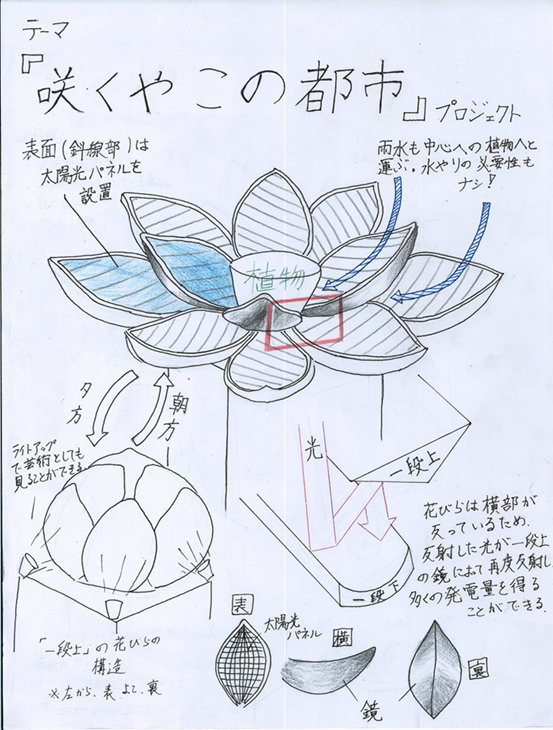 テーマ
『咲くやこの都市』プロジェクト
表面(斜線部)は
太陽光パネルを
設置
雨水も中心への植物へと
運ぶ。水やりの必要性も
ナシ!
植物
夕方
朝方
ライトアップ
で芸術としても
見ることができる
光
一段上
一段下
花びらは横部が
反っているため、
反射した光が一段上
の鏡において再度反射し
多くの発電量を得る
ことができる.
「一段上」の花びらの
構造
※左から、表、よこ、裏
表
太陽光
パネル
横
裏
鏡